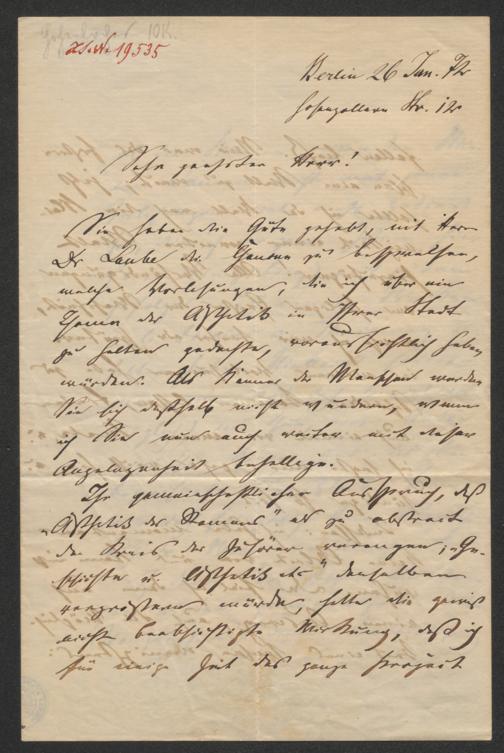 I.N. 19535
Berlin 26 Jan. 72
Hohenzollern Str. 12
Sehr geehrter Herr!
Sie haben die Güte gehabt, mit Herrn
Dr. Laube die Chancen zu besprechen,
welche Vorlesungen, die ich über ein
Thema der Ästhetik in Ihrer Stadt
zu halten gedachte, voraussichtlich haben
würden. Als Kenner der Menschen werden
Sie sich deshalb nicht wundern, wenn
ich Sie nun auch weiter mit dieser
Angelegenheit behellige.
Ihr gemeinschaftlicher Ausspruch, daß
„Ästhetik des Romans" als zu abstract
den Kreis der Zuhörer verengen, „Ge-
schichte u. Ästhetik etc" denselben
vergrößern würde, hatte die gewiß
nicht beabsichtigte Wirkung, daß ich
für einige Zeit das ganze Project